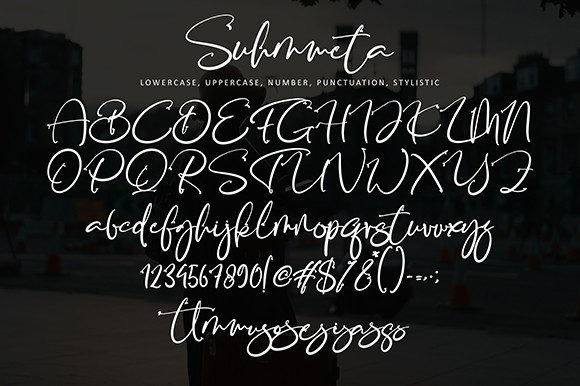 Suhmmeta
LOWERCASE, UPPERCASE, NUMBER, PUNCTUATION, STYLISTIC
ABCDEFGHIJKLMN
OPQRSTUNWXYZ
abcdefghijklmnopqrstuvwxyz
1234567890!@#$%&*()-=,.;